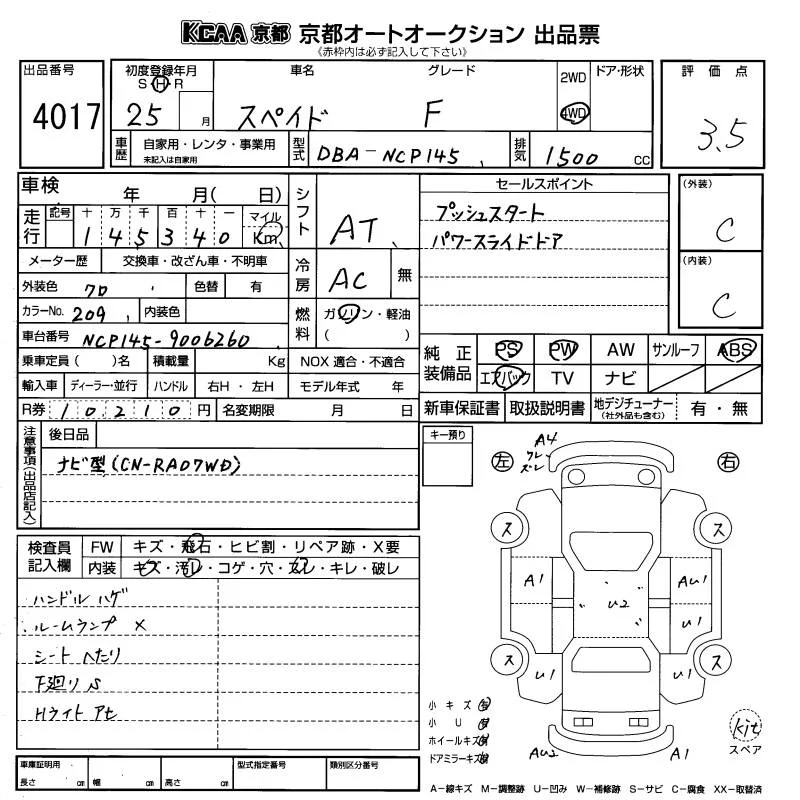 KCAA 京都 京都オートオークション 出品票
《赤枠内は必ず記入して下さい》
出品番号 初度登録年月 車名 グレード 2WD ドア・形状 評価点
S・H・R
4017 25 月 スペイド F 4WD 3.5
車歴 自家用・レンタ・事業用 未記入は自家用 型式 DBA-NCP145 排気 1500 CC
車検 年 月( 日) シフト AT セールスポイント (外装)
走行 記号 十 万 千 百 十 一 マイル プッシュスタート
1 4 5 3 4 0 Km パワースライドドア C
メーター歴 交換車・改ざん車・不明車 冷房 AC 無 (内装)
外装色 クロ 色替 有 C
カラーNo. 209 内装色 燃料 ガソリン・軽油
( )
車台番号 NCP145-9006260
乗車定員( )名 積載量 Kg NOX 適合・不適合 純正装備品 PS PW AW サンルーフ ABS
輸入車 ディーラー・並行 ハンドル 右H・左H モデル年式 年 エアバック TV ナビ
R券 10210円 名変期限 月 日 新車保証書 取扱説明書 地デジチューナー (社外品も含む) 有・無
注意事項(出品店記入) 後日品 キー預り
ナビ型(CN-RA07WD)
A4
ワレ
ズレ
左 右
ス ス
検査員記入欄 FW キズ・飛石・ヒビ割・リペア跡・X要
内装 キズ・汚レ・コゲ・穴・スレ・キレ・破レ
A1 AU1
ハンドル ハゲ
U2 U1
ルームランプ X
シート ヘたり
ス ス
下廻り S
U1 U1
Hライト アセ
小キズ 有
小U 有
ホイールキズ
ドアミラーキズ
AU2 A1
kit
スペア
車庫証明用 型式指定番号 類別区分番号
長さ cm 幅 cm 高さ cm
A-線キズ M-調整跡 U-凹み W-補修跡 S-サビ C-腐食 XX-取替済